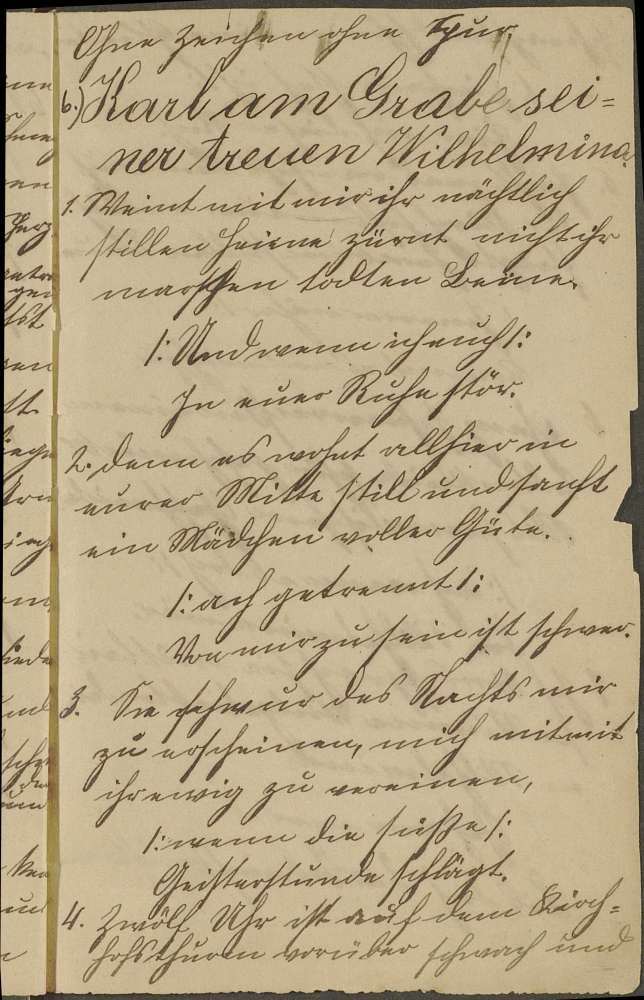 Ohne Zeichen ohne Spur.
6.) Karl am Grabe sei=
ner treuen Wilhelmina.
1. Weint mit mir ihr nächtlich
stillen Haine zürnt nicht ihr
morschen todten Beine.
/: Und wenn ich euch /:
In euer Ruhe stör.
2. Denn es wohnt allhier in
eurer Mitte still und sanft
ein Mädchen voller Güte.
/: ach getrennt /:
Von mir zu sein ist schwer.
3. Sie schwur des Nachts mir
zu erscheinen, mich mit
ihr ewig zu vereinen,
/: wenn die süße /:
Geisterstunde schlägt.
4. Zwölf Uhr ist auf dem Kirch=
hofsthurm vorüber schwach und